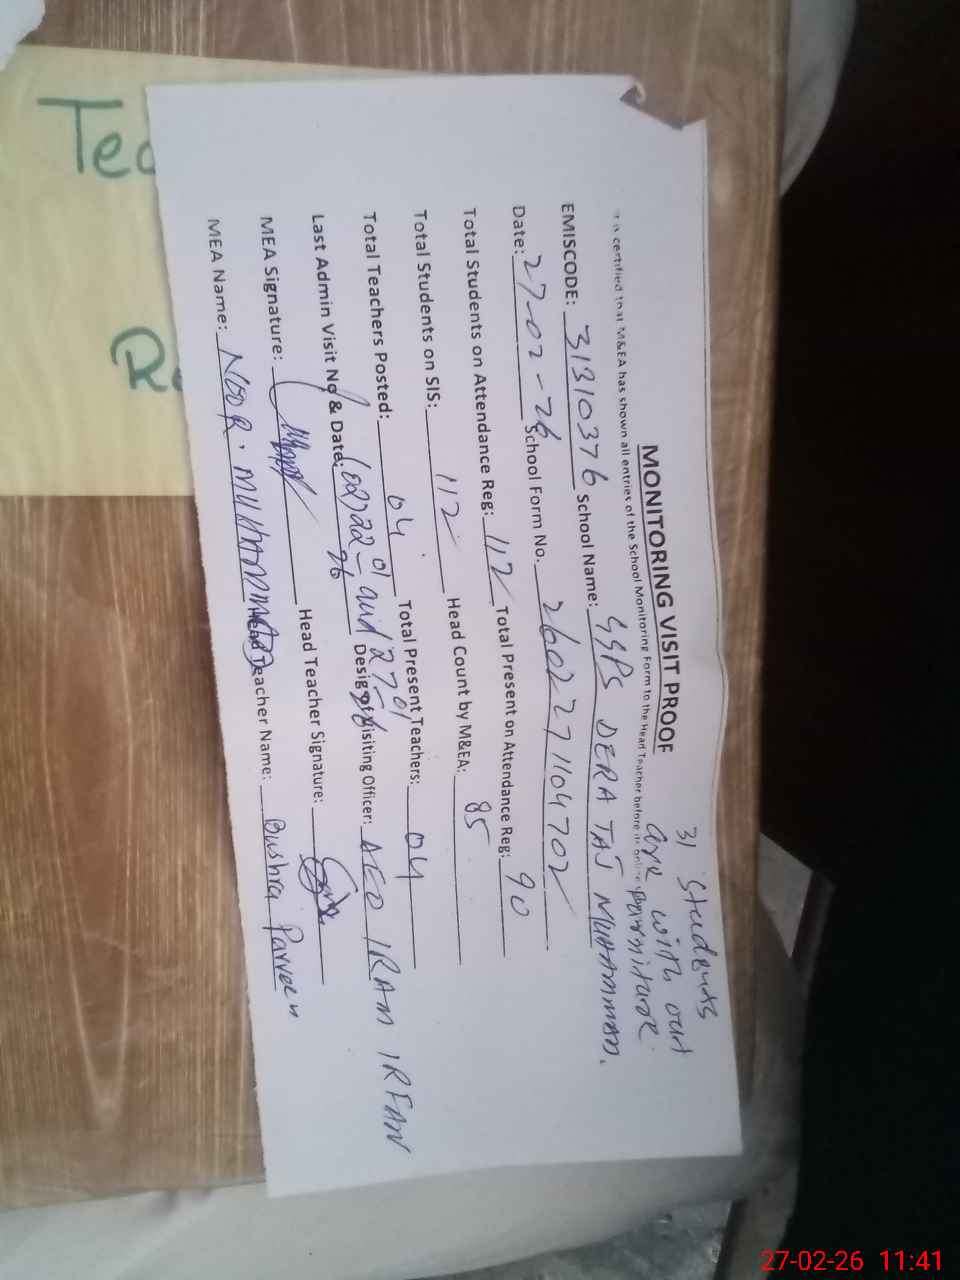 31 students
are with out
furniture.
MONITORING VISIT PROOF
It is certified that M&EA has shown all entries of the School Monitoring Form to the Head Teacher before its online
EMISCODE: 31310376 School Name: GGPS DERA TAJ MUHAMMAD.
Date: 27-02-26 School Form No. 2602271104702
Total Students on Attendance Reg: 112 Total Present on Attendance Reg: 90
Total Students on SIS: 112 Head Count by M&EA: 85
Total Teachers Posted: 04 Total Present Teachers: 04
Last Admin Visit No & Date: (02) 22-01-26 and 27-01-26 Desig of Visiting Officer: AEO IRAM IRFAN
MEA Signature: Head Teacher Signature:
MEA Name: NOOR MUHAMMAD Head Teacher Name: Bushra Parveen
Te
R
27-02-26 11:41